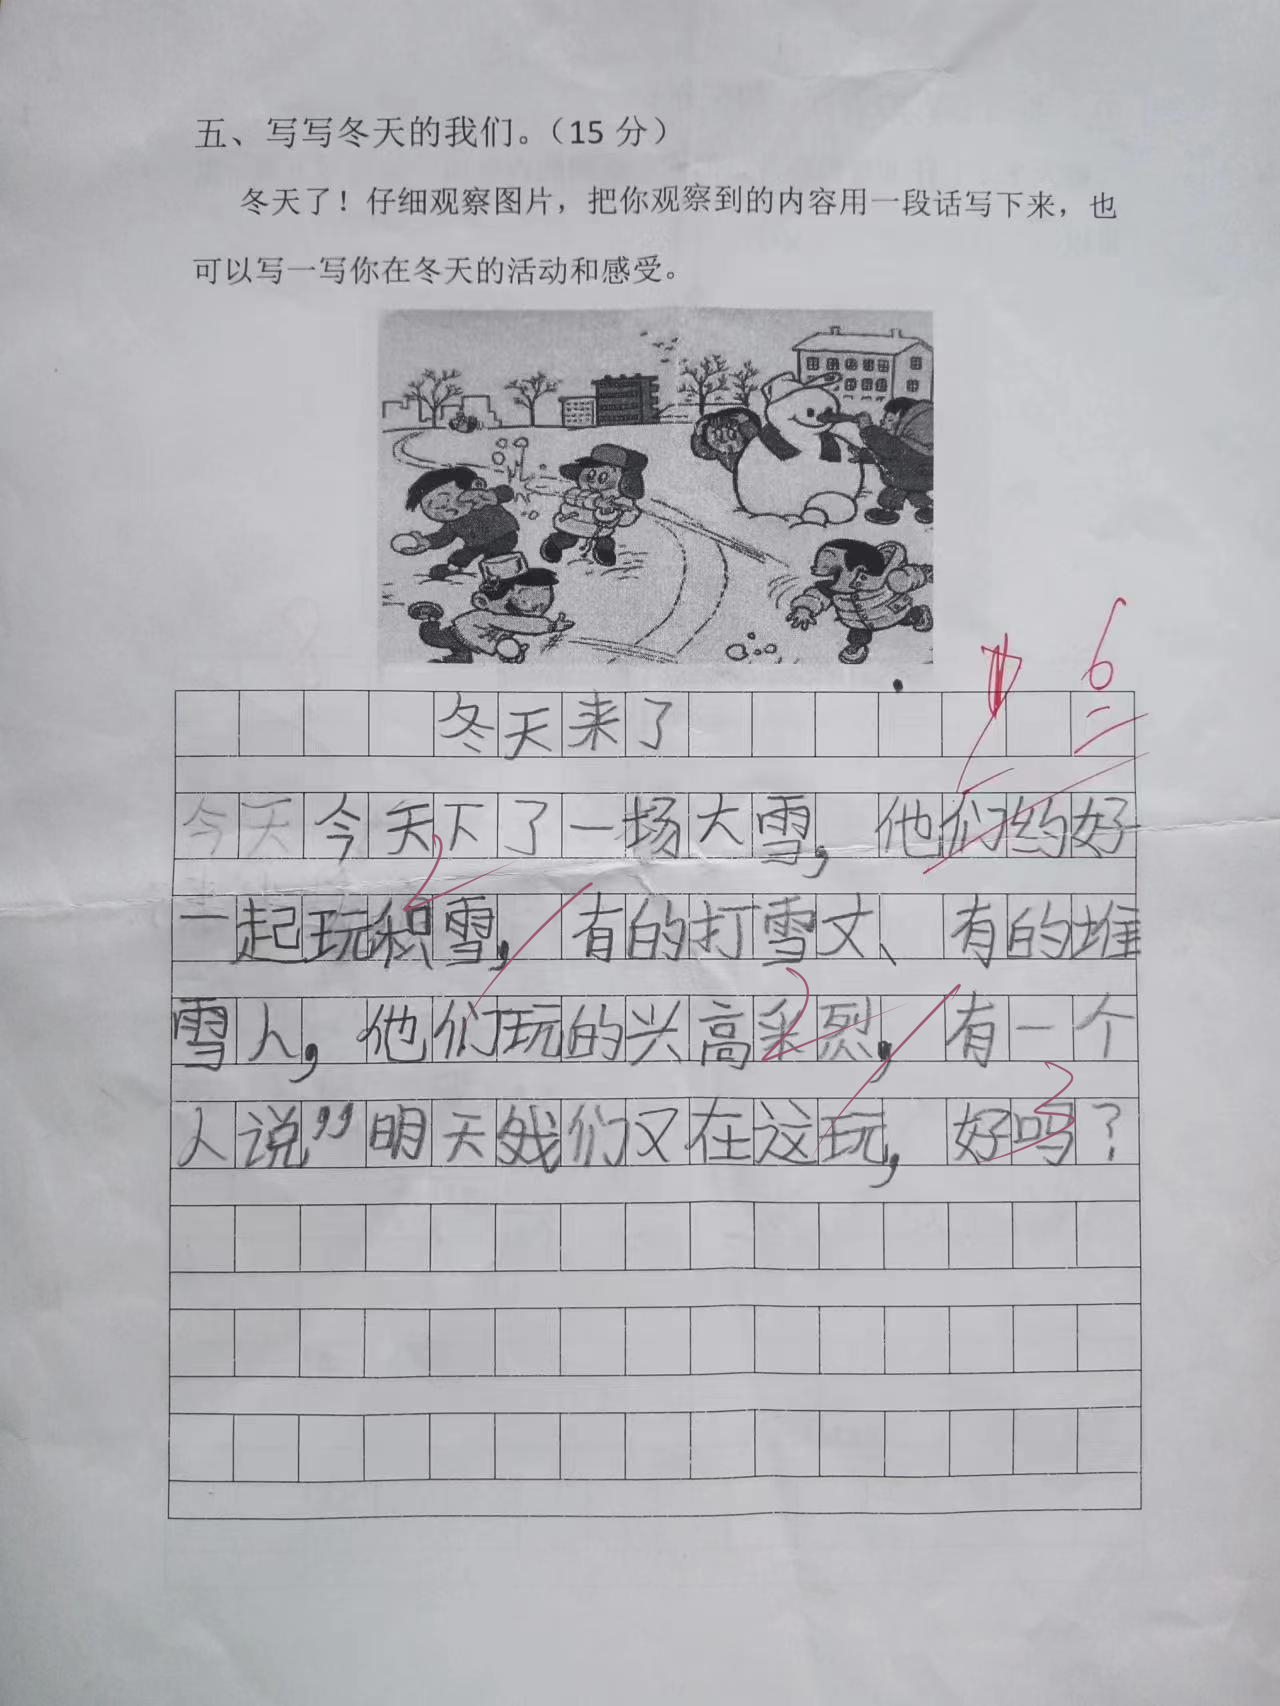 五、写写冬天的我们。（15 分）
冬天了！仔细观察图片，把你观察到的内容用一段话写下来，也
可以写一写你在冬天的活动和感受。
6
冬天来了
今天今天下了一场大雪，他们约好
一起玩积雪，有的打雪丈、有的堆
雪人，他们玩的兴高采烈，有一个
人说”明天我们又在这玩，好吗？